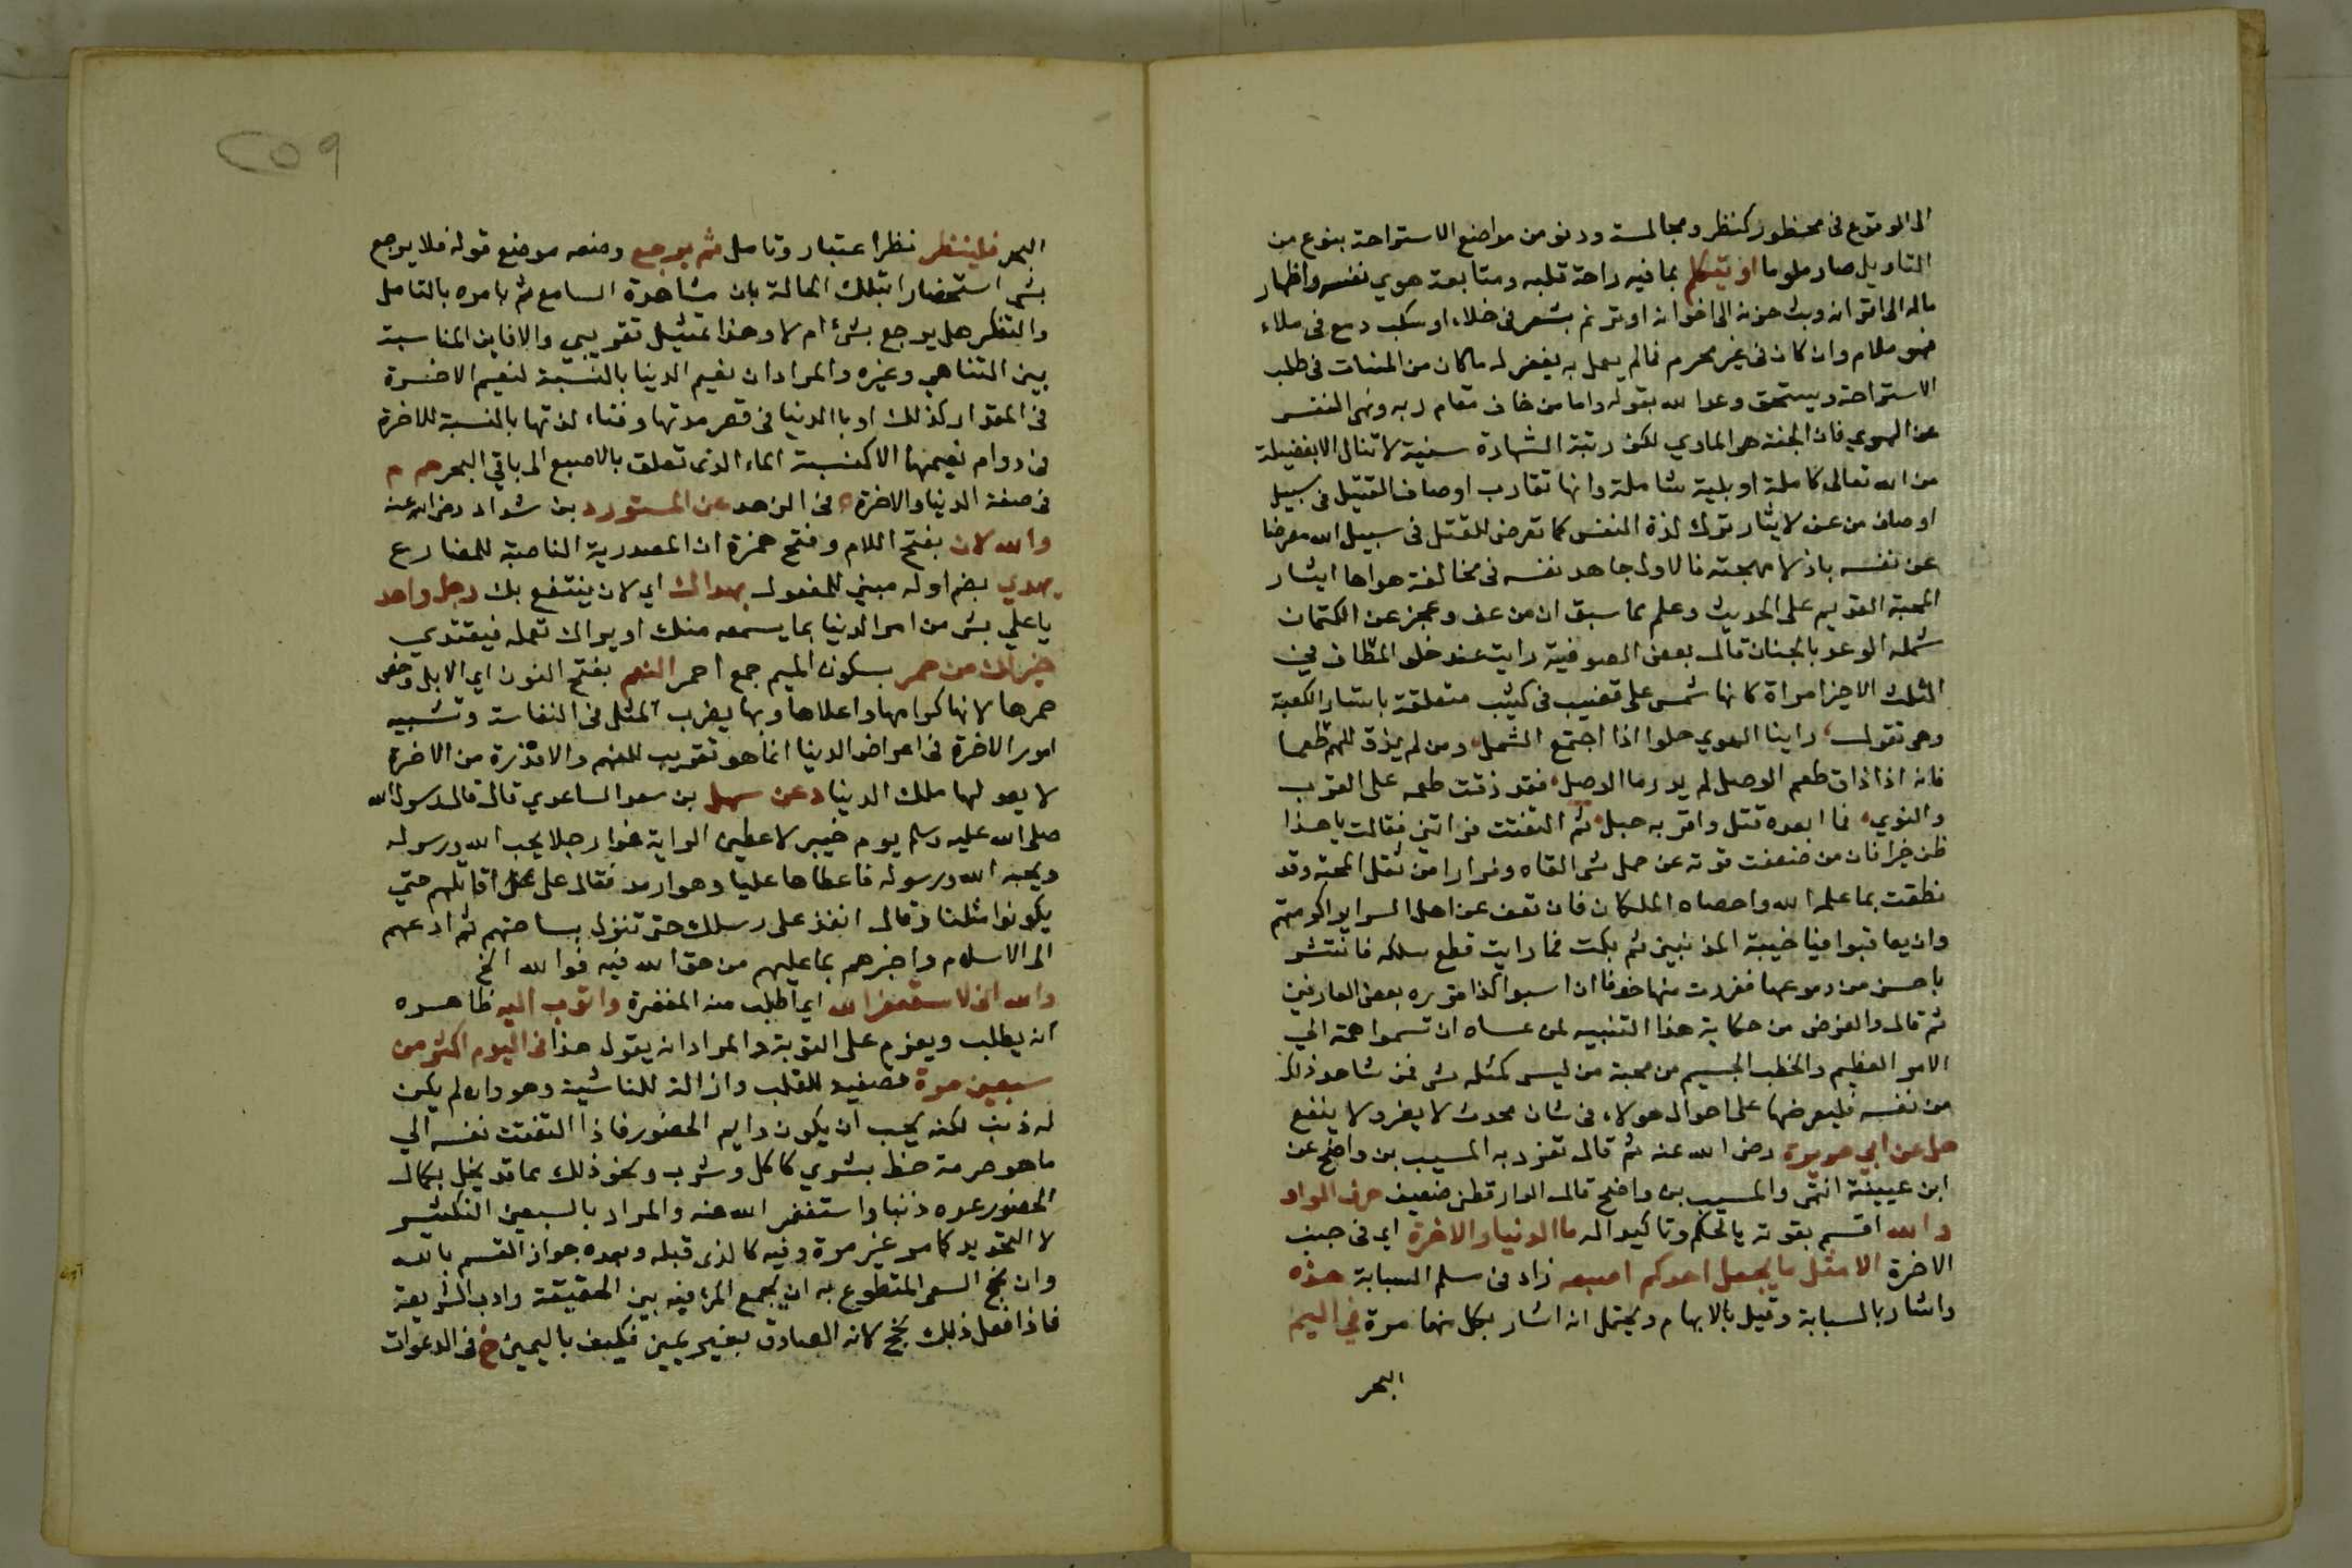 الى الوقوع فى محظور كنظر ومجالسة ودنو من مواضع الاستراحة بنوع من
التاويل صار ملوما او تكلم بما فيه راحة قلبه ومتابعة هوي نفسه واظهار
ماله الى اقرانه وبث حزنه الى اخوانه او ترنم بشعر فى خلاء او سكب دمع فى ملاء
فهو ملام وان كان فى غير محرم فالم يعمل به يغفر له ما كان من الهنات فى طلب
الاستراحة ويستحق وعد الله بقوله واما من خاف مقام ربه ونهى النفس
عن الهوي فان الجنة هى الماوي لكن رتبة الشهادة سنية لا تنال الا بفضيلة
من الله تعالى كاملة او بلية شاملة وانها تقارب اوصاف القتيل فى سبيل
اوصاف من عف لايثار ترك لذة النفس كما تعرض للقتل فى سبيل الله معرضا
عن نفسه باذلا مهجته فالاول جاهد نفسه فى مخالفة هواها ايثار
المحبة القديم على الحديث وعلم بما سبق ان من عف وعجز عن الكتمان
شمله الوعد بالجنان قال بعض الصوفية رايت عند خلو المطاف في
الثلث الاخير امراة كانها شمس على قضيب فى كثيب متعلقة باستار الكعبة
وهى تقول راينا الهوي حلوا اذا اجتمع الشمل ومن لم يذق للهم طعما
فانه اذا ذاق طعم الوصل لم يدر ما الوصل فقد ذقت طعمه على القرب
والنوي فما ابعده قتل واقربه حبل ثم التفتت فراتني فقالت يا هذا
ظن خيرا فان من ضعفت قوته عن حمل شى القاه وفرارا من ثقل المحبة وقد
نطقت بما علمه الله واحصاه الملكان فان تعف عن اهل السراير اكو منهم
وان يعاقبوا فيا خيبة المذنبين ثم بكت فما رايت قطع سلكه فانتشر
باحسن من دموعها ففررت منها خوفا ان اسبو كذا قرره بعض العارفين
ثم قال والغرض من حكاية هذا التنبيه لمن عساه ان تسموا همته الي
الامر العظيم والخطب الجسيم من محبة من ليس كمثله شى فمن شاهد ذلك
من نفسه فليعرضها على احوال هولاء فى شان محدث لا يضر ولا ينفع
حل عن ابي هريرة رضى الله عنه ثم قال تفرد به المسيب بن واضح عن
ابن عيينة انتهى والمسيب بن واضح قال الدارقطنى ضعيف حرف الواو
والله اقسم بقوته يالحكم وتاكيدا له ما الدنيا والاخرة اي فى جنب
الاخرة الا مثل ما يجعل احدكم اصبعه زاد فى سلم السبابة هذه
واشار بالسبابة وقيل بالابهام ويحتمل انه اشار بكل منها مرة في اليم
البحر
٢٥٩
البحر فلينظر نظر اعتبار وتامل ثم يرجع وضعه موضع قوله فلا يرجع
بشى استحضارا لتلك الحالة بان مشاهدة السامع ثم يامره بالتامل
والتفكر هل يرجع بشئ ام لا وهذا تمثيل تقريبي والا فاين المناسبة
بين المتناهي وغيره والمراد ان نعيم الدنيا بالنسبة لنعيم الاخرة
فى المقدار كذلك او با الدنيا فى قصر مدتها وفناء لذتها بالنسبة للاخرة
فى دوام نعيمها الا كنسبة الماء الذى تعلق بالاصبع الى باقي البحر حم م
فى صفة الدنيا والاخرة ه فى الزهد عن المستورد بن شداد رضى الله عنه
والله لان بفتح اللام وفتح همزة ان المصدرية الناصبة للمضارع
يهدي بضم اوله مبني للمفعول بهداك اي لان ينتفع بك رجل واحد
يا علي بشى من امر الدنيا بما يسمعه منك او يراك تعمله فيقتدي
خير لك من حمر بسكون الميم جمع احمر النعم بفتح النون اي الابل وخص
حمرها لانها كرامها واعلاها وبها يضرب المثل فى النفاسة وتشبيه
امور الاخرة فى اعراض الدنيا انما هو تقريب للفهم والا فذرة من الاخرة
لا يعد لها ملك الدنيا د عن سهل بن سعد الساعدي قال قال رسول الله
صلى الله عليه وسلم يوم خيبر لاعطين الراية غدا رجلا يحب الله ورسوله
ويحبه الله ورسوله فاعطاها عليا وهو ارمد فقال على على م اقاتلهم حتي
يكونوا مثلنا فقال انفذ على رسلك حتى تنزل بساحتهم ثم ادعهم
الى الاسلام واخبرهم بما عليهم من حق الله فيه فوالله الخ
والله انى لاستغفر الله اي اطلب منه المغفرة واتوب اليه ظاهره
انه يطلب ويعزم على التوبة والمراد انه يقول هذا فى اليوم اكثر من
سبعين مرة تصفية للقلب وازالة للناشية وهو وان لم يكن
له ذنب لكنه يجب ان يكون دايم الحضور فاذا التفتت نفسه الي
ما هو حرمة حظ بشري كاكل وشرب ونحو ذلك مما قد يخل بكمال
الحضور عده ذنبا واستغفر الله عنه والمراد بالسبعين التكثير
لا التحديد كما مر غير مرة وفيه كالذى قبله وبعده جواز القسم بالله
وان نجح السعى المتطوع به ان يجمع المرء فيه بين الحقيقة وادب الشريعة
فاذا فعل ذلك نجح لانه الصادق بغير يمين فكيف باليمين خ فى الدعوات